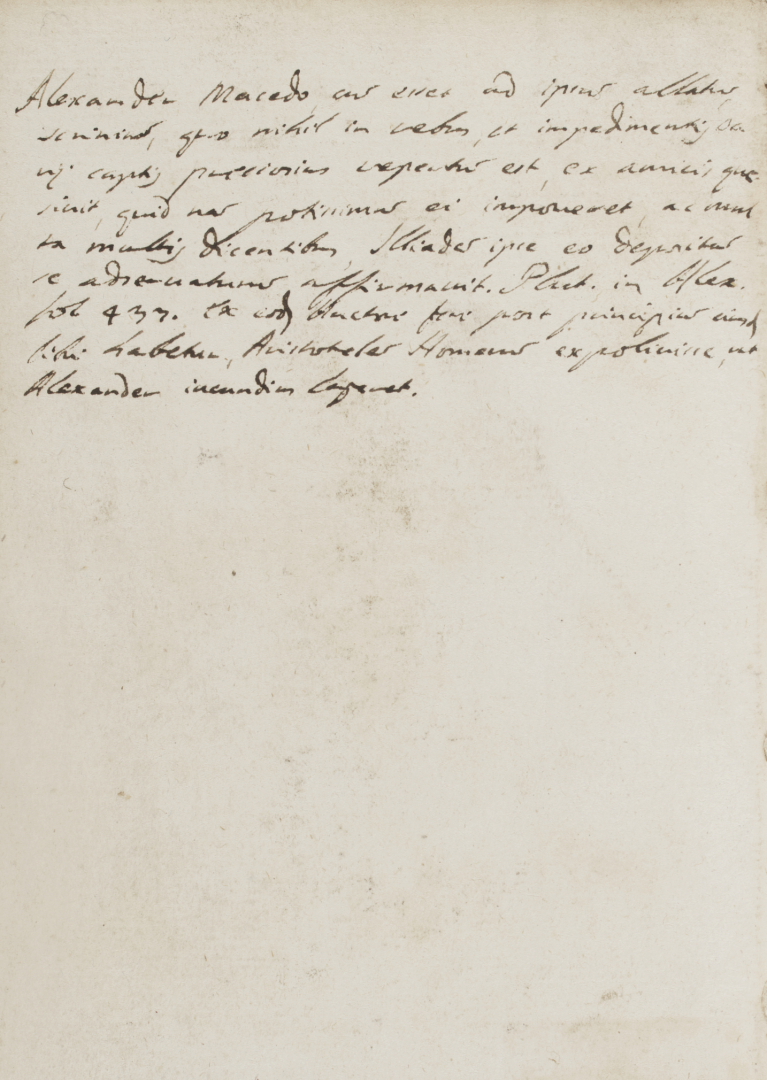 Alexander Macedo, cū esset ad ipsū allatū
scriniū, quo nihil in rebus, et impedimentis Da
rij captis preciosius repertū est, ex amicis que
siuit, quid nā potissimū ei imponeret, ac mul
ta multis dicentibus, Illiadē ipse eo depositā
se adseruaturū affirmauit. Plut. in Alex.
fol 437. Ex eod auctore fere post principiū eiusd
libri habetur, Aristotelē Homerū expoliuisse, ut
Alexander iucundius legeret.